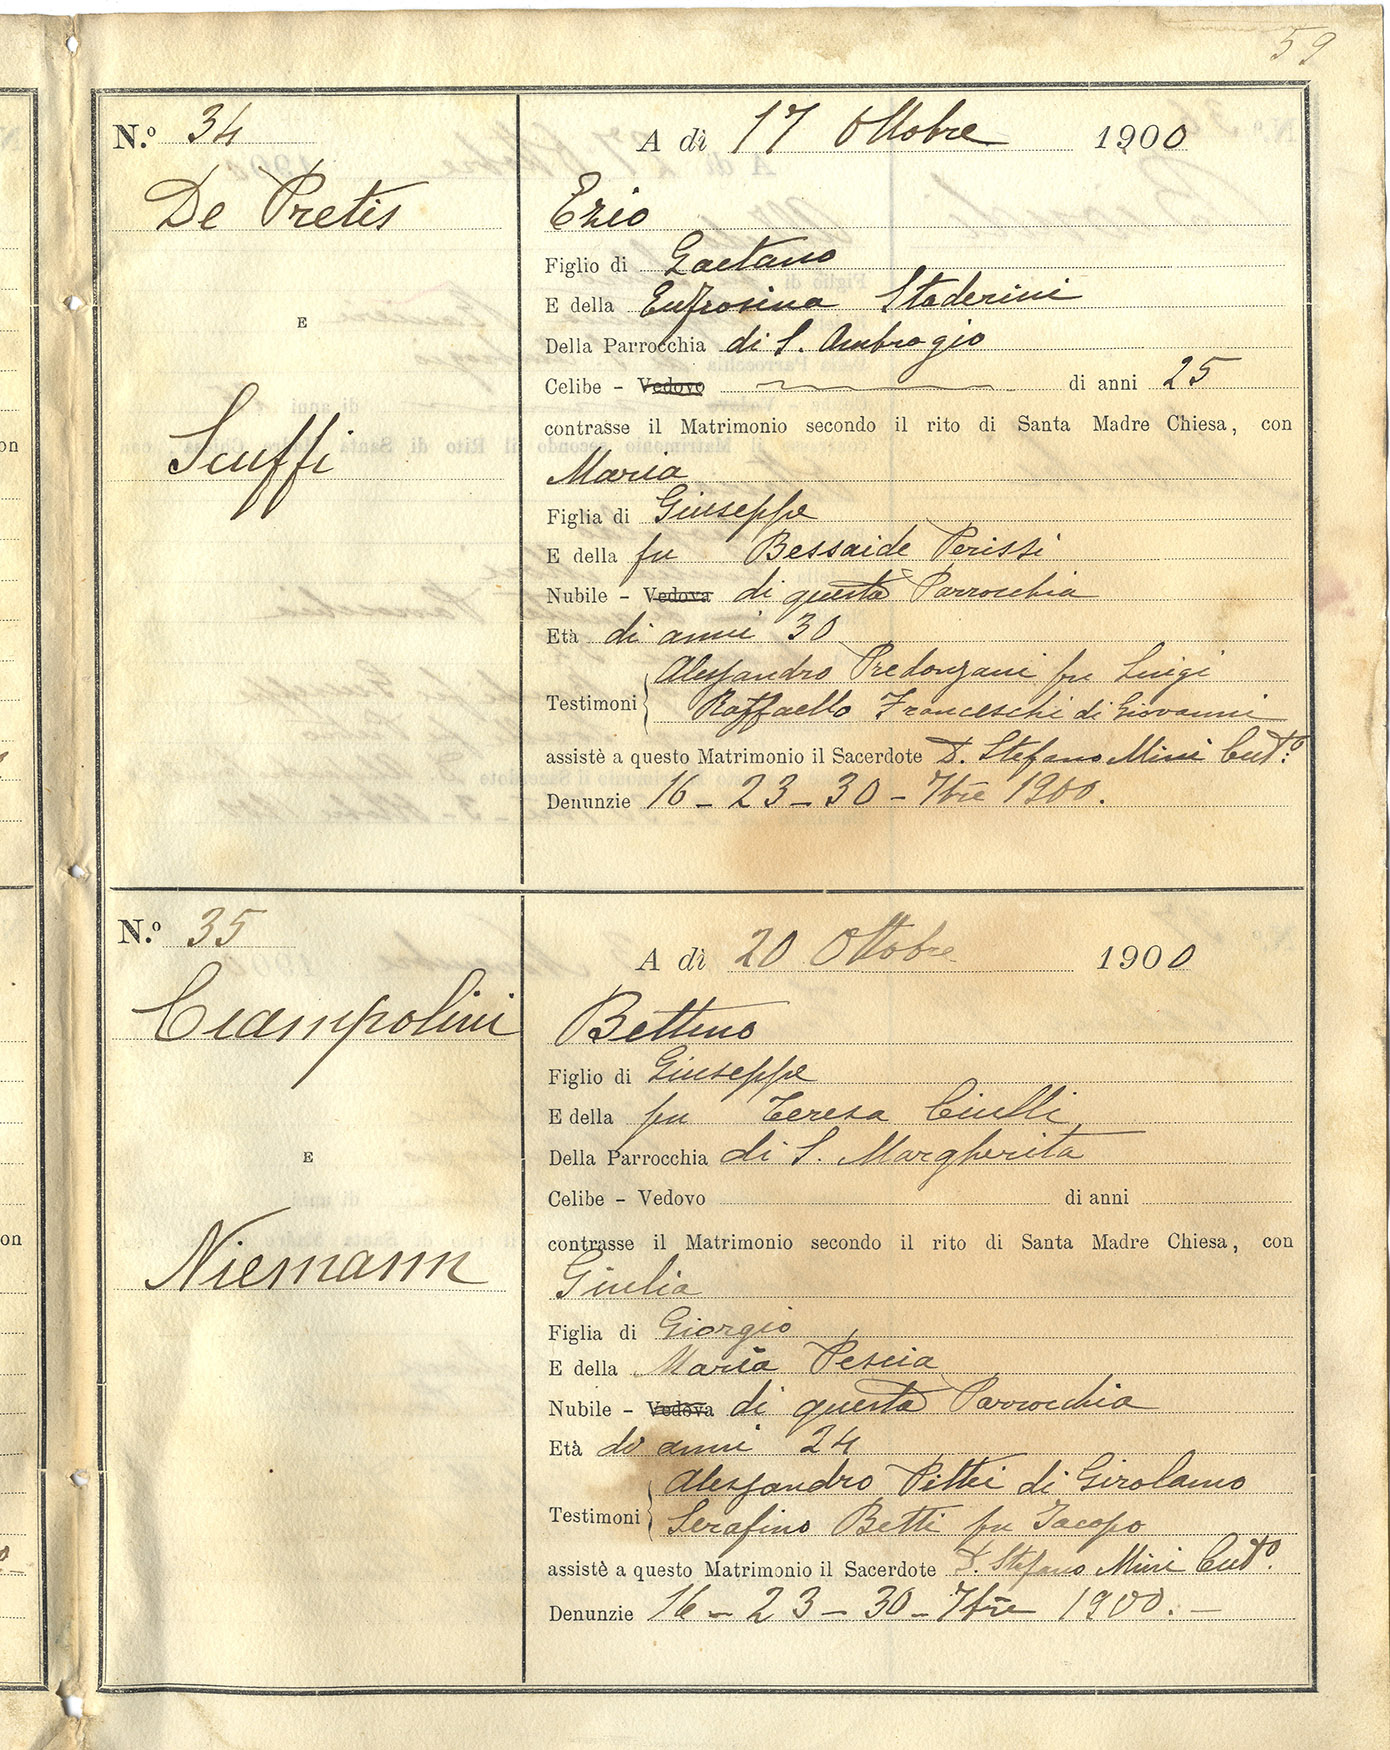 59
N.º 34
A dì 17 Ottobre 1900
De Pretis
E
Scuffi
Ezio
Figlio di Gaetano
E della Eufrosina Staderini
Della Parrocchia di S. Ambrogio
Celibe - Vedovo di anni 25
contrasse il Matrimonio secondo il rito di Santa Madre Chiesa, con
Maria
Figlia di Giuseppe
E della fu Bessaide Perissi
Nubile - Vedova di questa Parrocchia
Età di anni 30
Testimoni Alessandro Predonzani fu Luigi
Raffaello Franceschi di Giovanni
assistè a questo Matrimonio il Sacerdote D. Stefano Mini Cut.º
Denunzie 16 - 23 - 30 - 7bre 1900.
N.º 35
A dì 20 Ottobre 1900
Ciampolini
E
Niemann
Bettino
Figlio di Giuseppe
E della fu Teresa Ciulli
Della Parrocchia di S. Margherita
Celibe - Vedovo di anni
contrasse il Matrimonio secondo il rito di Santa Madre Chiesa, con
Giulia
Figlia di Giorgio
E della Maria Pescia
Nubile - Vedova di questa Parrocchia
Età di anni 24
Testimoni Alessandro Pittei di Girolamo
Serafino Betti fu Jacopo
assistè a questo Matrimonio il Sacerdote D. Stefano Mini Cut.º
Denunzie 16 - 23 - 30 - 7bre 1900. -